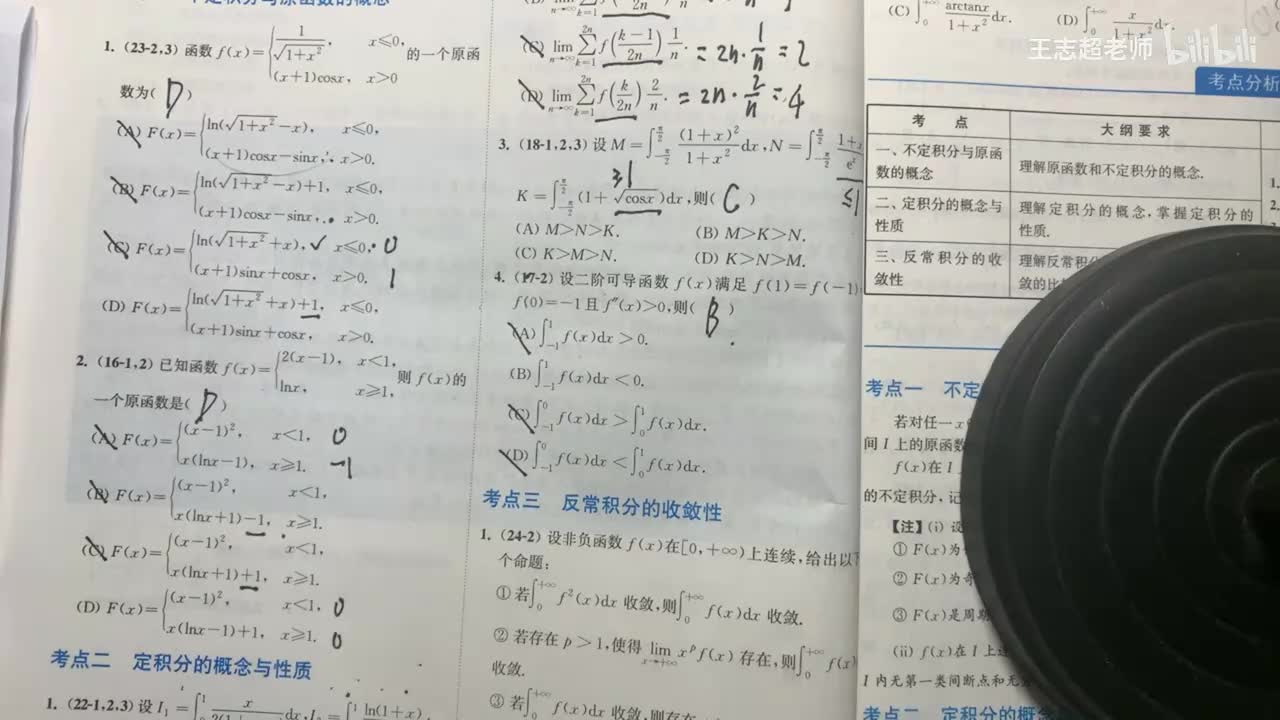 不定积分与原函数的概念
1. (23-2,3) 函数 f(x)={1/√(1+x²), x≤0, (x+1)cosx, x>0 的一个原函
数为( D )
(A) F(x)={ln(√(1+x²)-x), x≤0,
(x+1)cosx-sinx, x>0.
(B) F(x)={ln(√(1+x²)-x)+1, x≤0,
(x+1)cosx-sinx, x>0.
(C) F(x)={ln(√(1+x²)+x), ✓ x≤0, 0
(x+1)sinx+cosx, x>0. 1
(D) F(x)={ln(√(1+x²)+x)+1, x≤0,
(x+1)sinx+cosx, x>0.
2. (16-1,2) 已知函数 f(x)={2(x-1), x<1, lnx, x≥1, 则 f(x)的
一个原函数是( D )
(A) F(x)={(x-1)², x<1, 0
x(lnx-1), x≥1. -1
(B) F(x)={(x-1)², x<1,
x(lnx+1)-1, x≥1.
(C) F(x)={(x-1)², x<1,
x(lnx+1)+1, x≥1.
(D) F(x)={(x-1)², x<1, 0
x(lnx-1)+1, x≥1. 0
考点二 定积分的概念与性质
1. (22-1,2,3) 设 I₁=∫₀¹ x
(C) lim n→∞ ∑ k=1 2n f((k-1)/2n) 1/n. = 2n·1/n = 2
(D) lim n→∞ ∑ k=1 2n f(k/2n) 2/n. = 2n·2/n = 4
3. (18-1,2,3) 设 M=∫_{-π/2}^{π/2} (1+x)²/(1+x²) dx, N=∫_{-π/2}^{π/2} 1+x
≥1
K=∫_{-π/2}^{π/2} (1+√cosx)dx, 则( C ) ≤1
(A) M>N>K. (B) M>K>N.
(C) K>M>N. (D) K>N>M.
4. (17-2) 设二阶可导函数 f(x) 满足 f(1)=f(-1)
f(0)=-1 且 f″(x)>0, 则( B )
(A) ∫_{-1}^{1} f(x)dx>0.
(B) ∫_{-1}^{1} f(x)dx<0.
(C) ∫_{-1}^{0} f(x)dx>∫₀¹ f(x)dx.
(D) ∫_{-1}^{0} f(x)dx<∫₀¹ f(x)dx.
考点三 反常积分的收敛性
1. (24-2) 设非负函数 f(x) 在[0,+∞)上连续,给出以
个命题:
① 若∫₀^{+∞} f²(x)dx 收敛,则∫₀^{+∞} f(x)dx 收敛.
② 若存在 p>1,使得 lim x→+∞ x^p f(x) 存在,则∫₀^{+∞} f(x)
收敛.
③ 若∫₀^{+∞} f(x)dx 收敛,则存在
(C) ∫₀^{+∞} arctanx/(1+x²) dx. (D) ∫₀^{+∞} x/(1+x²) dx.
王志超老师 bilibili
考点分析
考点 大纲要求
一、不定积分与原函数的概念 理解原函数和不定积分的概念. 1.
二、定积分的概念与性质 理解定积分的概念,掌握定积分的性质. 2.
三、反常积分的收敛性 理解反常积
敛的比
考点一 不定
若对任一 x
间 I 上的原函数
f(x)在 I
的不定积分,记
【注】(i) 设
① F(x)为
② F(x)为奇
③ F(x)是周期
(ii) f(x)在 I 上连
I 内无第一类间断点和无
考点二 定积分的概念